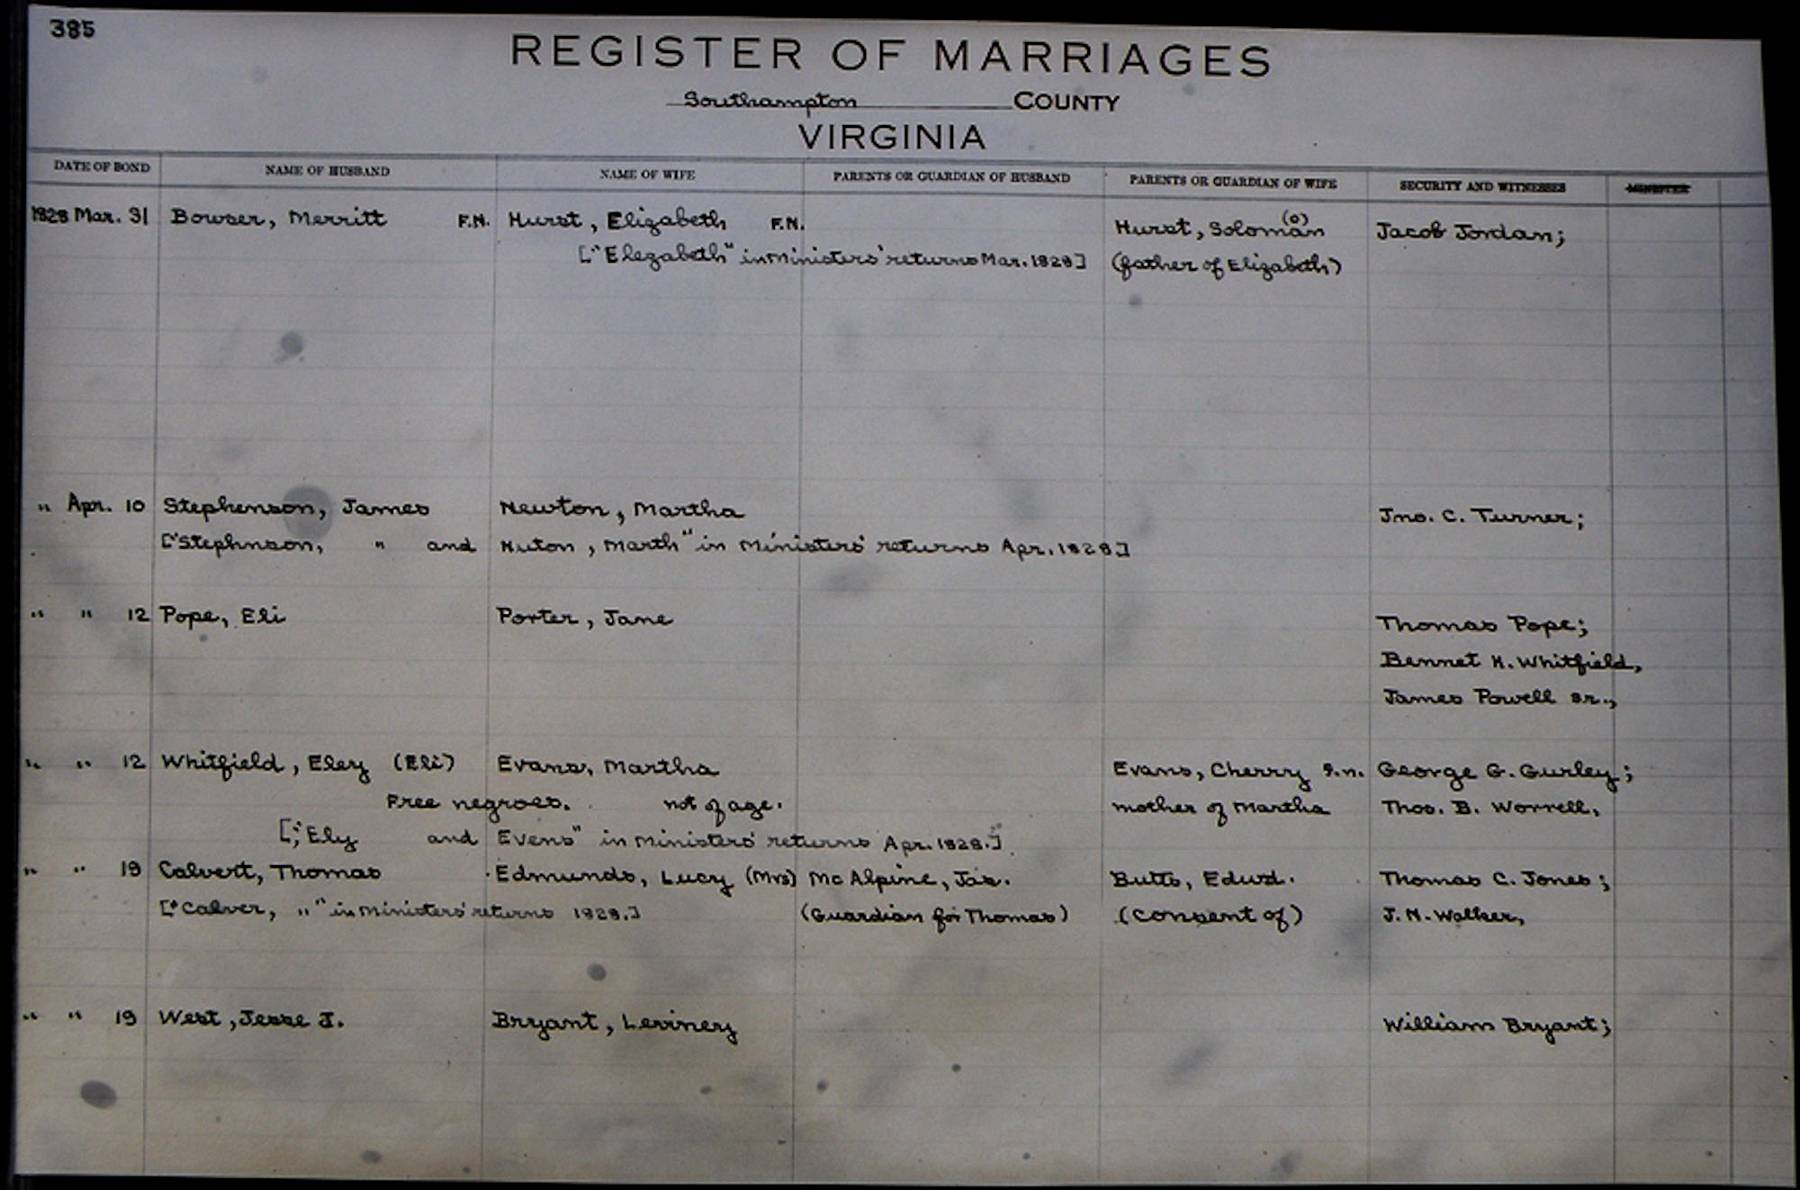 385
REGISTER OF MARRIAGES
Southampton COUNTY
VIRGINIA
DATE OF BOND NAME OF HUSBAND NAME OF WIFE PARENTS OR GUARDIAN OF HUSBAND PARENTS OR GUARDIAN OF WIFE SECURITY AND WITNESSES MINISTER
1828 Mar. 31 Bowser, Merritt F.N. Hurst, Elizabeth F.N. Hurst, Soloman (o) Jacob Jordan;
["Elezabeth" in Ministers' returns Mar. 1828] (father of Elizabeth)
" Apr. 10 Stephenson, James Newton, Martha Jno. C. Turner;
["Stephnson, " and Nuton, Marth" in Ministers' returns Apr. 1828]
" " 12 Pope, Eli Porter, Jane Thomas Pope;
Bennet H. Whitfield,
James Powell sr.,
" " 12 Whitfield, Eley (Eli) Evans, Martha Evans, Cherry F.N. George G. Gurley;
Free negroes. not of age. mother of Martha Thos. B. Worrell,
["Ely and Evens" in Ministers' returns Apr. 1828.]
" " 19 Calvert, Thomas Edmunds, Lucy (Mrs) McAlpine, Jas. Butts, Edwd. Thomas C. Jones;
["Calver, "" in Ministers' returns 1828.] (Guardian for Thomas) (consent of) J. N. Walker,
" " 19 West, Jesse J. Bryant, Leviney William Bryant;